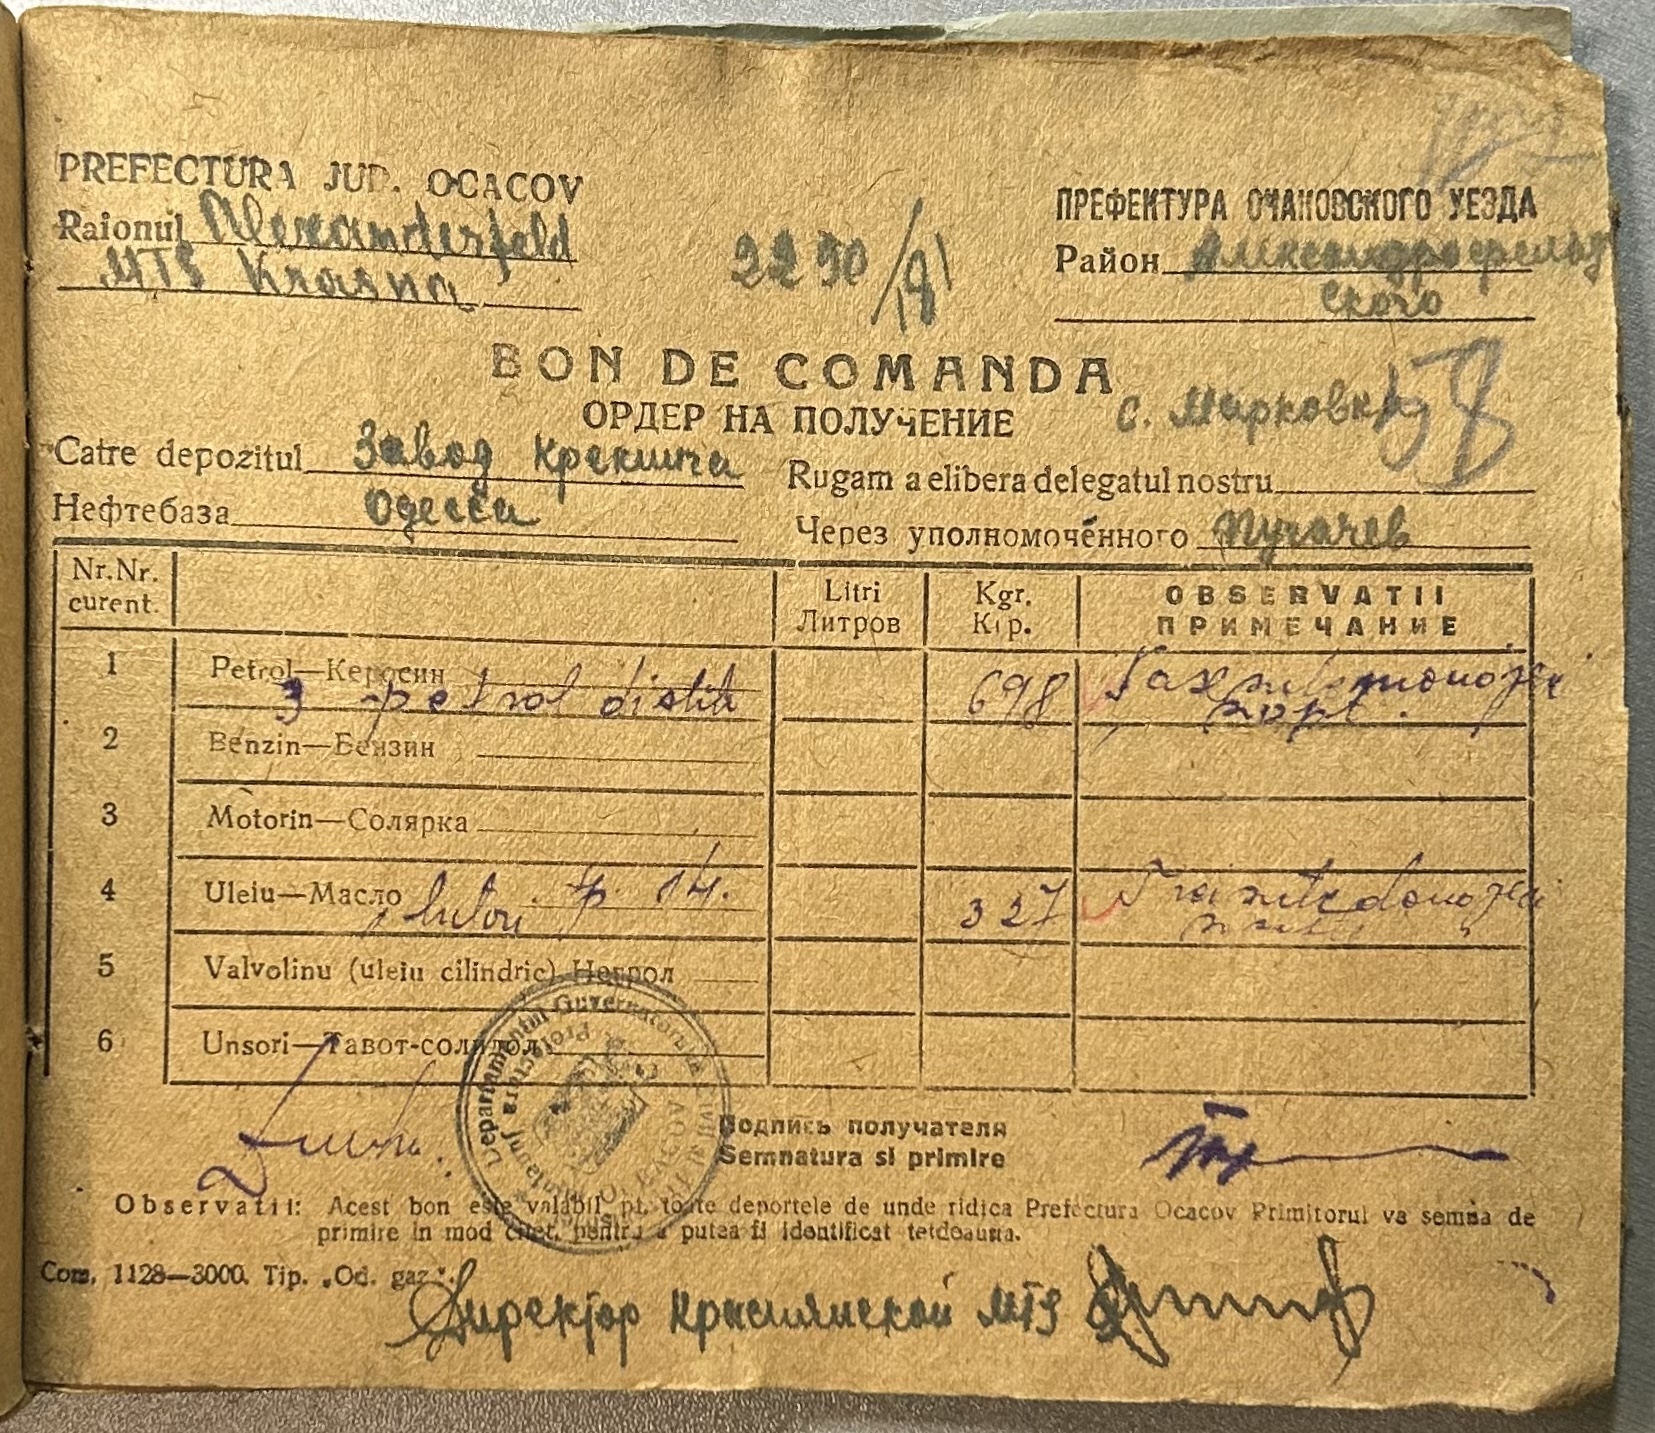 PREFECTURA JUD. OCACOV
Raionul Alexanderfeld
MTS Krasna
ПРЕФЕКТУРА ОЧАКОВСКОГО УЕЗДА
Район Александрофельд
ского
BON DE COMANDA
ОРДЕР НА ПОЛУЧЕНИЕ
с. Марковка
58
Catre depozitul Завод Крекинга
Нефтебаза Одесса
Rugam a elibera delegatul nostru
Через уполномоченного Пугачев
Nr. Nr. curent.
Litri Литров
Kgr. Кгр.
OBSERVATII
ПРИМЕЧАНИЕ
1 Petrol—Керосин
3 petrol distil 698
2 Benzin—Бензин
3 Motorin—Солярка
4 Uleiu—Масло р. 14. 327
5 Valvolinu (uleiu cilindric) Негрол
6 Unsori—Тавот-солидол
Departamentul Guvernatorului
Prefectura Judetului
OCACOV
Подпись получателя
Semnatura si primire
Observatii: Acest bon este valabil pt. toate deportele de unde ridica Prefectura Ocacov Primitorul va semna de
primire in mod citet, pentru a putea fi identificat tetdeauna.
Com. 1128—3000. Tip. „Od. gaz".
Директор Краснянской МТS